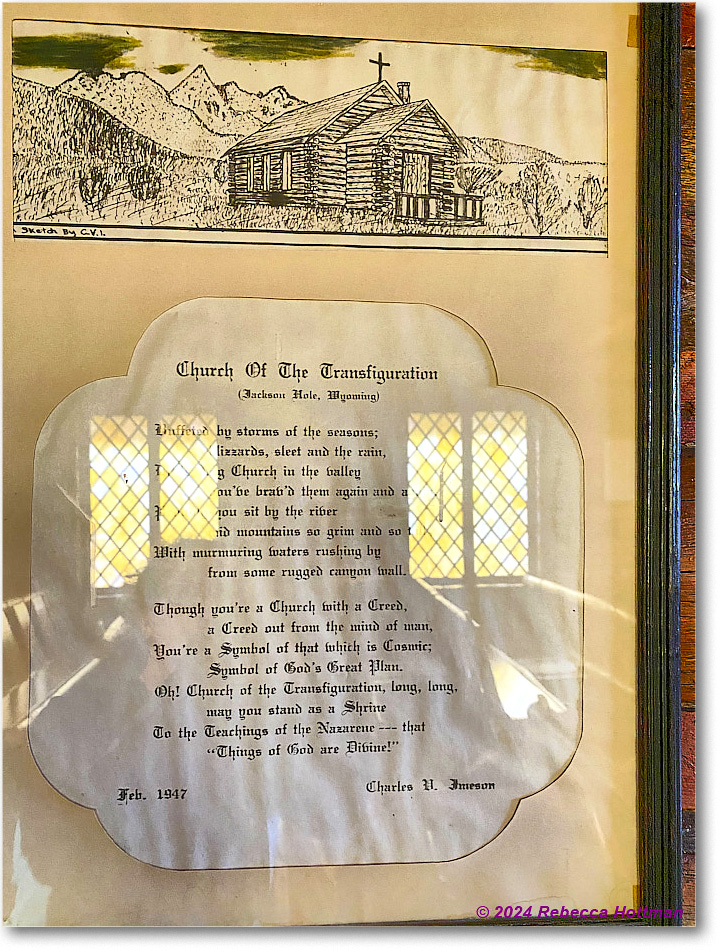 Sketch By C.V.I.
Church Of The Transfiguration
(Jackson Hole, Wyoming)
Buffeted by storms of the seasons;
lizzards, sleet and the rain,
g Church in the valley
ou've brav'd them again and a
ou sit by the river
mid mountains so grim and so
With murmuring waters rushing by
from some rugged canyon wall.
Though you're a Church with a Creed,
a Creed out from the mind of man,
You're a Symbol of that which is Cosmic;
Symbol of God's Great Plan.
Oh! Church of the Transfiguration, long, long,
may you stand as a Shrine
To the Teachings of the Nazarene --- that
"Things of God are Divine!"
Feb. 1947
Charles V. Imeson
© 2024 Rebecca Hoffman